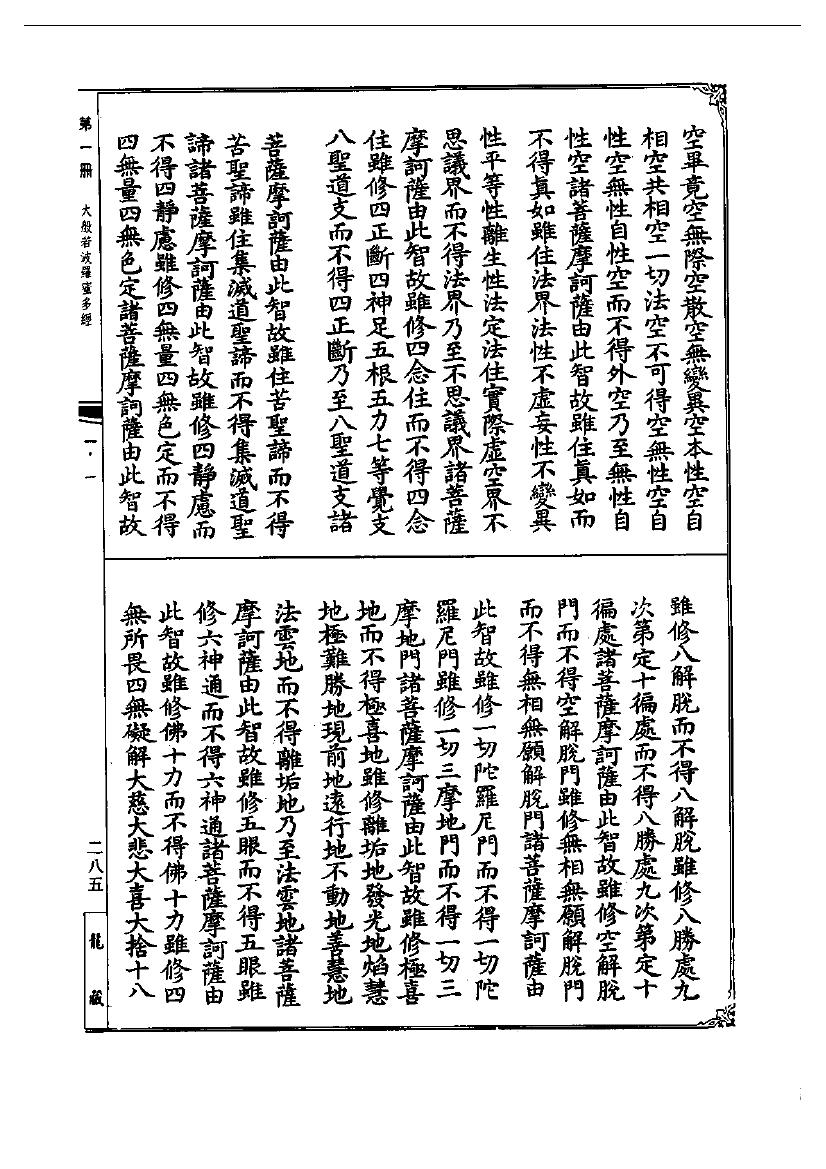 空畢竟空無際空散空無變異空本性空自
相空共相空一切法空不可得空無性空自
性空無性自性空而不得外空乃至無性自
性空諸菩薩摩訶薩由此智故雖住真如而
不得真如雖住法界法性不虛妄性不變異
性平等性離生性法定法住實際虛空界不
思議界而不得法界乃至不思議界諸菩薩
摩訶薩由此智故雖修四念住而不得四念
住雖修四正斷四神足五根五力七等覺支
八聖道支而不得四正斷乃至八聖道支諸
菩薩摩訶薩由此智故雖住苦聖諦而不得
苦聖諦雖住集滅道聖諦而不得集滅道聖
諦諸菩薩摩訶薩由此智故雖修四靜慮而
不得四靜慮雖修四無量四無色定而不得
四無量四無色定諸菩薩摩訶薩由此智故
雖修八解脫而不得八解脫雖修八勝處九
次第定十徧處而不得八勝處九次第定十
徧處諸菩薩摩訶薩由此智故雖修空解脫
門而不得空解脫門雖修無相無願解脫門
而不得無相無願解脫門諸菩薩摩訶薩由
此智故雖修一切陀羅尼門而不得一切陀
羅尼門雖修一切三摩地門而不得一切三
摩地門諸菩薩摩訶薩由此智故雖修極喜
地而不得極喜地雖修離垢地發光地焰慧
地極難勝地現前地遠行地不動地善慧地
法雲地而不得離垢地乃至法雲地諸菩薩
摩訶薩由此智故雖修五眼而不得五眼雖
修六神通而不得六神通諸菩薩摩訶薩由
此智故雖修佛十力而不得佛十力雖修四
無所畏四無礙解大慈大悲大喜大捨十八
第一冊 大般若波羅蜜多經
一·一
二八五
龍藏